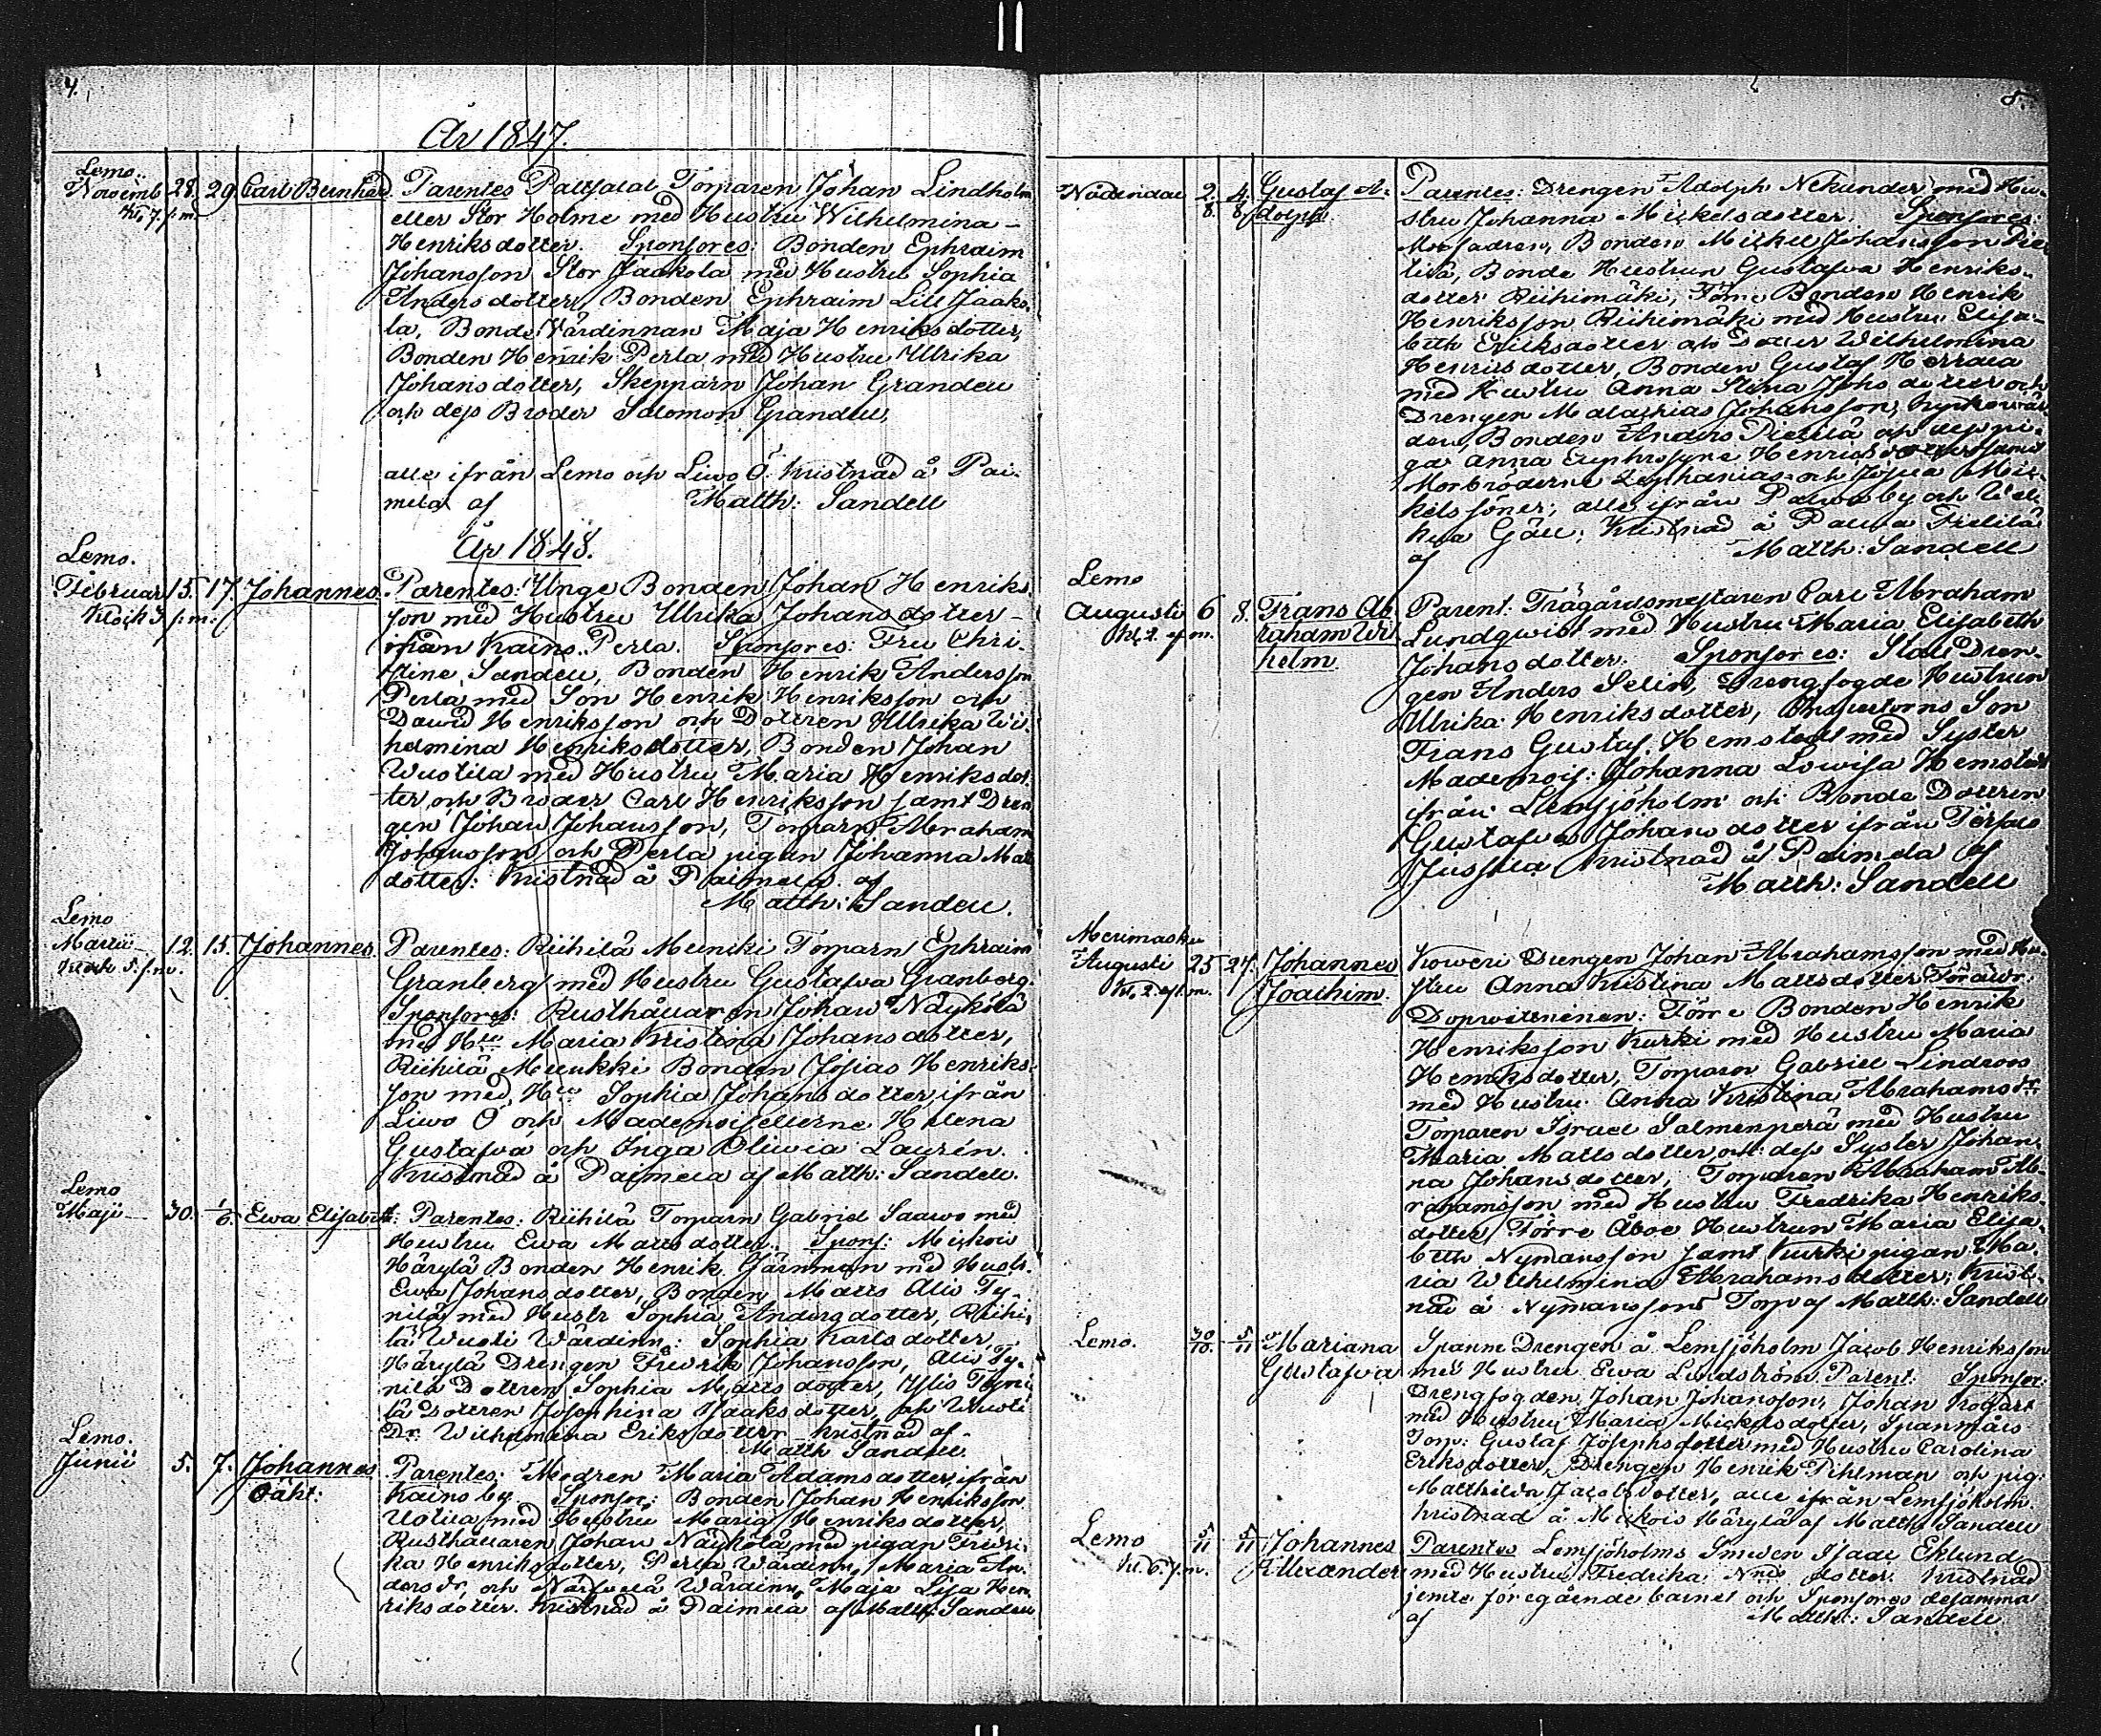 4.
År 1847.
Lemo.
Novemb 28. 29. Carl Bernhard. Parentes Torparen Johan Lindholm
kl. 7 f.m. eller Stor Holme med Hustru Wilhelmina
Henriksdotter. Sponsores: Bonden Ephraim
Johansson Stor Jaakola med Hustru Sophia
Andersdotter, Bonden Ephraim Lill Jaako-
la, Bonde Wärdinnan Maja Henriksdotter,
Bonden Henrik Perla med Hustru Ulrika
Johansdotter, Skepparn Johan Grandell
och dess Broder Salomon Grandell,
alle ifrån Lemo och Liwo Ö. kristnad å Pai-
mela af Matth: Sandell
År 1848.
Lemo.
Februar 15. 17. Johannes. Parentes: Unge Bonden Johan Henriks
Klock 3 f.m. son med Hustru Ulrika Johansdotter
ifrån Kains. Perla. Sponsores: Fru Chri-
stine Sandell, Bonden Henrik Andersson
Perla med Son Henrik Henriksson och
Dawid Henriksson och Dottren Ulrika Wil-
helmina Henriksdotter, Bonden Johan
Wustila med Hustru Maria Henriksdot-
ter och Broder Carl Henriksson samt Dren
gen Johan Johansson, Torparn Abraham
Johansson och Perla pigan Johanna Mats
dotter: Kristnad å Paimela af
Matth: Sandell.
Lemo
Martii 12. 15. Johannes. Parentes: Riihilä Munki Torparn Ephraim
Klock 5. f.m. Granberg med Hustru Gustafva Granberg.
Sponsores: Rusthållaren Johan Näykölä
med Hru Maria Kristina Johansdotter,
Riihilä Munkki Bonden Josias Henriks-
son med Hru Sophia Johansdotter ifrån
Liwo Ö och Mademoisellerne Helena
Gustafva och Inga Oliwia Laurén.
Kristnad å Paimela af Matth: Sandell.
Lemo
Maji 30. 1/6. Ewa Elisabeth: Parentes: Riihilä Torparn Gabriel Saawo med
Hustru Ewa Mattsdotter. Spons: Miskois
Härylä Bonden Henrik Järnman med Hustr.
Ewa Johansdotter, Bonden Matts Alis Ty-
nilä med Hustr Sophia Andersdotter, Riihi-
lä Wusti Wärdinn: Sophia Karlsdotter,
Härylä Drengen Fredrik Johansson, Alis Ty-
nilä Dottren Sophia Mattsdotter, Ylis Tyni
lä Dottren Josephina Isaaksdotter och Wusti
Dr. Wilhelmina Eriksdotter kristnad af
Matth Sandell.
Lemo.
Junii 5. 7. Johannes Parentes: Modren Maria Adamsdotter ifrån
Oäkt: Kainsby. Sponsor: Bonden Johan Henriksson
Ustila med Hustru Maria Henriksdotter,
Rusthållaren Johan Näykölä med pigan Fredri-
ka Henriksdotter, Perla Wärdinn, Maria An-
ders Dr. och Wärdinn, Maja Lisa Hen-
riksdotter. Kristnad å Paimela af Matth: Sandell
5.
Nådendal 2. 4. Gustaf A- Parentes: Drengen Adolph Nekunder med Hu-
8. 8 dolph. stru Johanna Mickelsdotter. Sponsores:
Morfadren, Bonden Mickel Johansson Pie-
tilä, Bonde Hustrun Gustafva Henriks-
dotter Riihimäki, Förre Bonden Henrik
Henriksson Riihimäki med Hustru Elisa-
beth Eriksdotter och Dotter Wilhelmina
Henriksdotter, Bonden Gustaf Herrala
med Hustru Anna Stina Johs dotter och
Drengen Malachias Johansson, Kyrkowär
den, Bonden Anders Pietilä och dess pi-
ga Anna Euphrosyne Henriksdotter samt
Morbröderne Zephanias och Josua Mic-
kelssöner; alle ifrån
Gäll; Kristnad å Pietilä
af Matth: Sandell
Lemo
Augusti 6 8. Frans Ab- Parent: Trägårdsmästaren Carl Abraham
kl. 2. ef m. raham Wil- Lundqwist med Hustru Maria Elisabeth
helm. Johansdotter. Sponsores: Stall Dren-
gen Anders Selin, Drengfogde Hustrun
Ulrika Henriksdotter, Son
Frans Gustaf Hemstedt med Syster
Mademois: Johanna Lowisa Hemstedt
ifrån Lemsjöholm och Bonde Dottren
Gustafva Johansdotter ifrån
Jussila Kristnad å Paimela af
Matth: Sandell
Merimasku
Augusti 25 27. Johannes Drengen Johan Abrahamsson med Hu-
kl. 2. eft.m. Joachim. stru Anna Kristina Mattsdotter Föräldr:
Dopwittninen: Förre Bonden Henrik
Henriksson Kurki med Hustru Maria
Henriksdotter, Torparn Gabriel Lindroos
med Hustru Anna Kristina Abrahams dr.
Torparen Israel Salmenperä med Hustru
Maria Matts dotter, och dess Syster Johan-
na Johansdotter, Torparen Abraham Ab-
rahamsson med Hustru Fredrika Henriks-
dotter, Förre Åboe Hustrun Maria Elisa-
beth Nymansson samt Kurki pigan Ma-
ria Wilhelmina Abrahamsdotter; Krist-
nad å Nymanssons Torp af Matth: Sandell
Lemo. 30/10. 5/11 Mariana Spanne Drengen å Lemsjöholm Jacob Henriksson
Gustafva med Hustru Ewa Lindström Parent: Sponsor:
Drengfogden Johan Johansson, Johan
med Hustru Maria Mickelsdotter, Spanmåls
Torp: Gustaf Josephs med Hustru Carolina
Eriksdotter, Drengen Henrik Pihlman och pig:
Matthilda Jacobsdotter, alle ifrån Lemsjöholm.
Kristnad å Miskois Härylä af Matth: Sandell
Lemo 5/11 5/11 Johannes Parentes Lemsjöholms Smeden Isaac Eklund
kl. 6. f.m. Allexander med Hustru Fredrika dotter. Kristnad
jemte föregående barnet och Sponsores desamma
af Matth: Sandell.